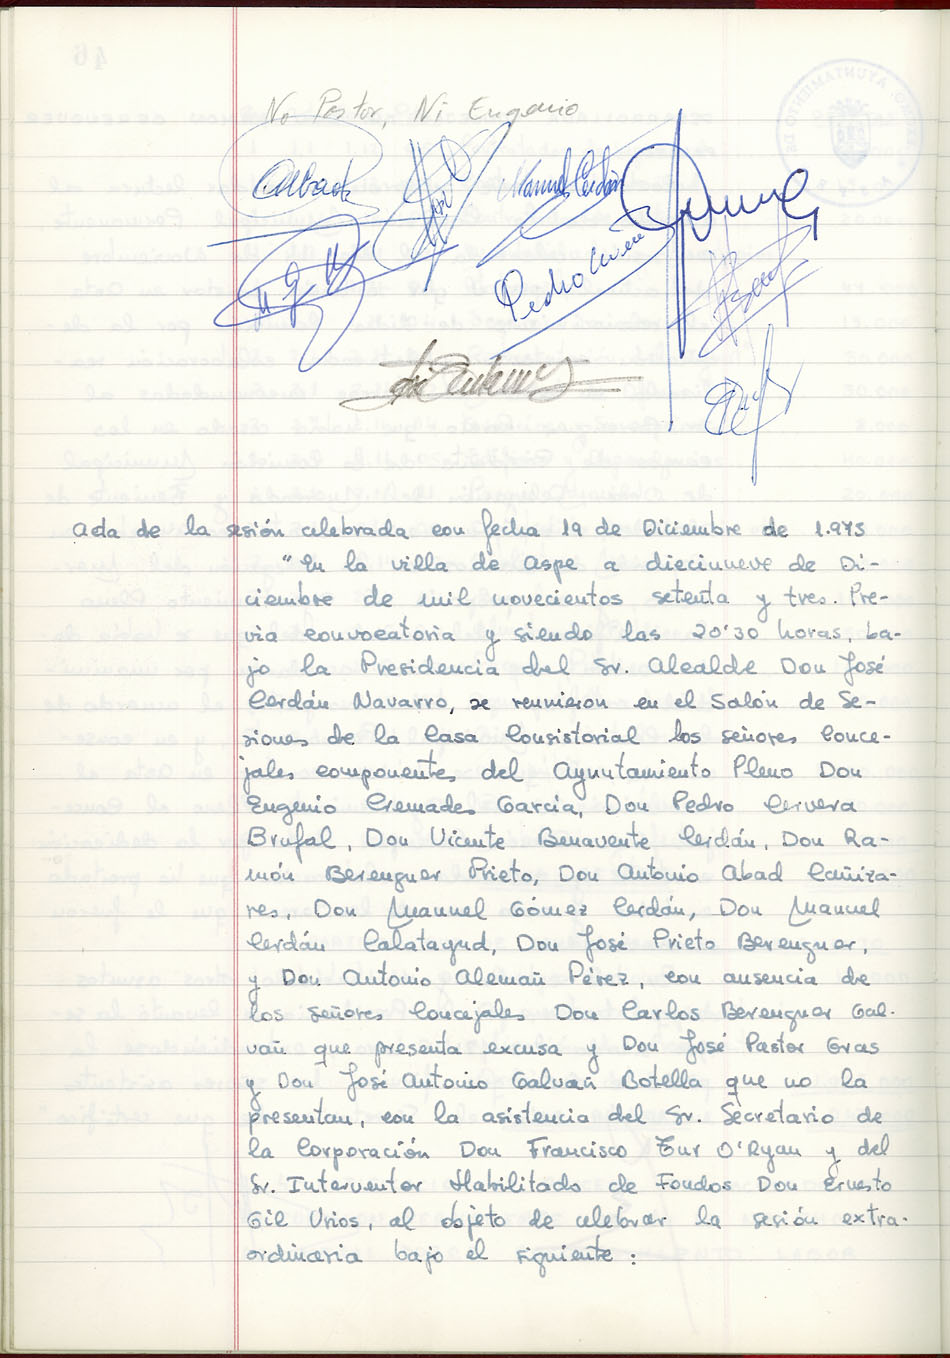 No Pastor, Ni Eugenio
Abad
Manuel Cerdán
Pedro
Acta de la sesión celebrada con fecha 19 de Diciembre de 1.973
"En la villa de Aspe a diecinueve de Di-
ciembre de mil novecientos setenta y tres. Pre-
via convocatoria y siendo las 20'30 horas, ba-
jo la Presidencia del Sr. Alcalde Don José
Cerdán Navarro, se reunieron en el Salón de Se-
siones de la Casa Consistorial los señores Conce-
jales componentes del Ayuntamiento Pleno Don
Eugenio Cremades García, Don Pedro Cervera
Brufal, Don Vicente Benavente Cerdán, Don Ra-
món Berenguer Prieto, Don Antonio Abad Cañiza-
res, Don Manuel Gómez Cerdán, Don Manuel
Cerdán Calatayud, Don José Prieto Berenguer,
y Don Antonio Alemañ Pérez, con ausencia de
los señores Concejales Don Carlos Berenguer Gal-
vañ que presenta excusa y Don José Pastor Gras
y Don José Antonio Galvañ Botella que no la
presentan, con la asistencia del Sr. Secretario de
la Corporación Don Francisco Tur O'Ryan y del
Sr. Interventor Habilitado de Fondos Don Ernesto
Gil Urios, al objeto de celebrar la sesión extra-
ordinaria bajo el siguiente: